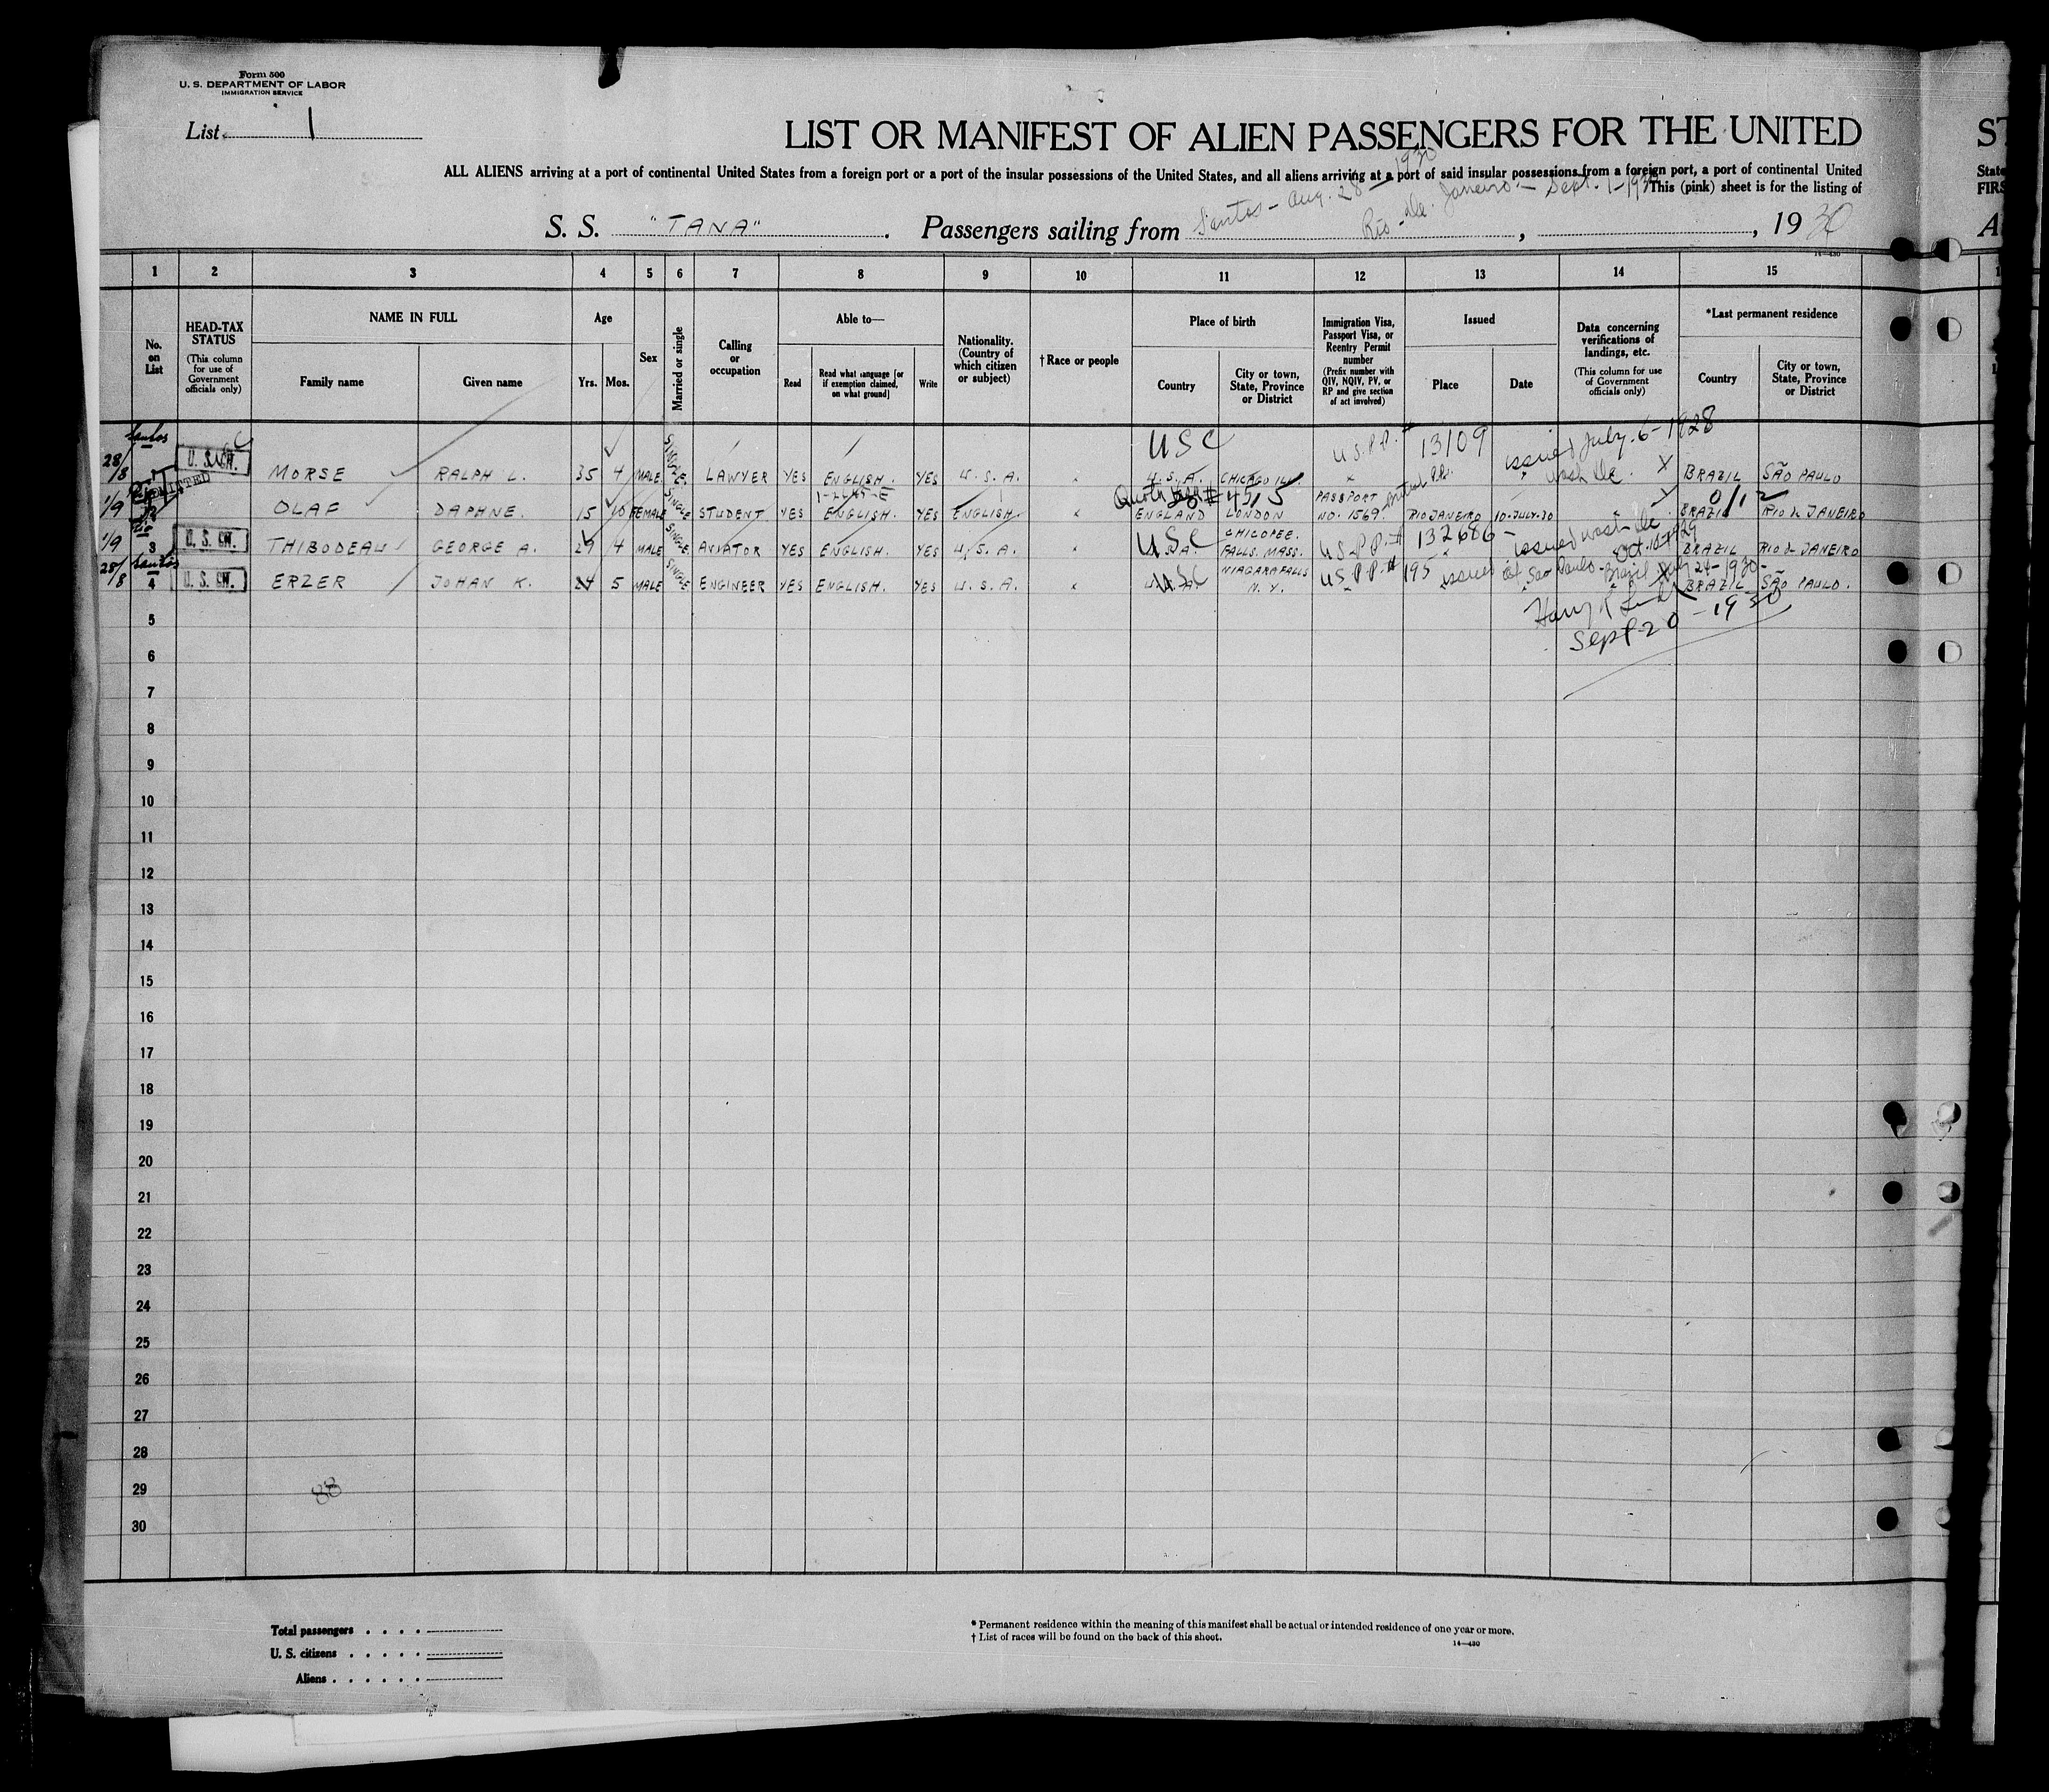 Form 500
U. S. DEPARTMENT OF LABOR
IMMIGRATION SERVICE
List 1
LIST OR MANIFEST OF ALIEN PASSENGERS FOR THE UNITED
ALL ALIENS arriving at a port of continental United States from a foreign port or a port of the insular possessions of the United States, and all aliens arriving at a port of said insular possessions from a foreign port, a port of continental United
This (pink) sheet is for the listing of
S. S. "TANA". Passengers sailing from Santos - Aug. 28 - 1930 Rio-De. Janeiro - Sept. 1-1930, , 1930
14—430
1 2 3 4 5 6 7 8 9 10 11 12 13 14 15
No. on List
HEAD-TAX STATUS (This column for use of Government officials only)
NAME IN FULL
Family name Given name
Age
Yrs. Mos.
Sex
Married or single
Calling or occupation
Able to—
Read Read what language [or if exemption claimed, on what ground] Write
Nationality. (Country of which citizen or subject)
† Race or people
Place of birth
Country City or town, State, Province or District
Immigration Visa, Passport Visa, or Reentry Permit number (Prefix number with QIV, NQIV, PV, or RP and give section of act involved)
Issued
Place Date
Data concerning verifications of landings, etc. (This column for use of Government officials only)
*Last permanent residence
Country City or town, State, Province or District
Santos USC U.S.P.P. # 13109 issued July. 6-1928
28/8 MORSE RALPH L. 35 4 MALE SINGLE LAWYER YES ENGLISH. YES U.S.A. U.S.A. CHICAGO ILL x Wash Dc. X BRAZIL SÃO PAULO
ADMITTED Quota # 4515 0/12
1/9 OLAF DAPHNE. 15 10 FEMALE SINGLE STUDENT YES ENGLISH. YES ENGLISH ENGLAND LONDON PASSPORT NO. 1569. RIO JANEIRO 10-JULY-30 BRAZIL RIO de JANEIRO
Rio USC U.S.P.P. # 132686 - issued wash Dc. Oct. 10-1929
1/9 3 U. S. CN. THIBODEAU GEORGE A. 29 4 MALE SINGLE AVIATOR YES ENGLISH. YES U.S.A. CHICOPEE. FALLS. MASS. BRAZIL RIO de JANEIRO
Santos USC U.S.P.P. # 195 issued at Sao Paulo - Brazil July 24-1930-
28/8 4 U. S. CN. ERZER JOHAN K. 24 5 MALE SINGLE ENGINEER YES ENGLISH. YES U.S.A. NIAGARA FALLS N.Y. BRAZIL SÃO PAULO.
Sept-20-1930
5
6
7
8
9
10
11
12
13
14
15
16
17
18
19
20
21
22
23
24
25
26
27
28
29
88
30
Total passengers
U. S. citizens
Aliens
* Permanent residence within the meaning of this manifest shall be actual or intended residence of one year or more.
† List of races will be found on the back of this sheet.
14—430